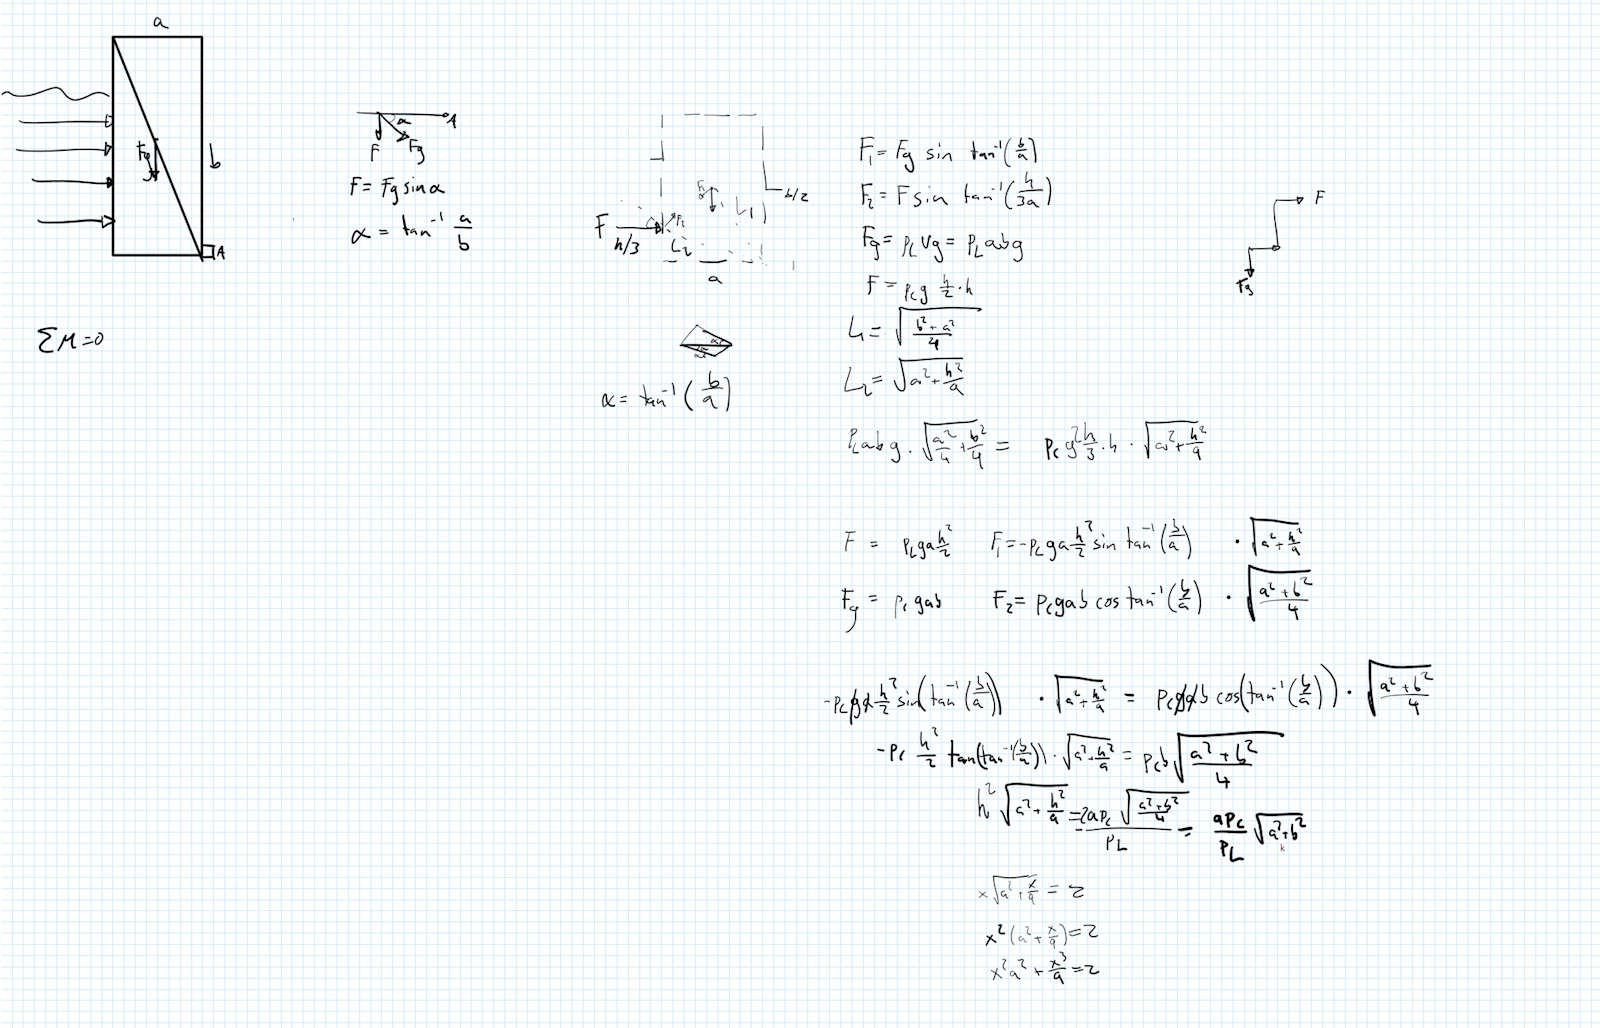 a
Fg
b
A
ΣM=0
A
α
F Fg
F = Fg sin α
α = tan⁻¹ a/b
b/2
L₁
F
h/3
L₂
a
α = tan⁻¹ (b/a)
F₁ = Fg sin tan⁻¹(b/a)
F₂ = F sin tan⁻¹(h/3a)
Fg = ρL Vg = ρL abg
F = ρc g h/2 · h
L₁ = √((b² + a²)/4)
L₂ = √(a² + h²/9)
ρL abg · √(a²/4 + b²/4) = ρc g² h/3 · h · √(a² + h²/9)
F = ρL ga h²/2 F₁ = -ρL ga h²/2 sin tan⁻¹(b/a) · √(a² + h²/9)
Fg = ρc gab F₂ = ρc gab cos tan⁻¹(b/a) · √((a² + b²)/4)
-ρL ga h²/2 sin(tan⁻¹(b/a)) · √(a² + h²/9) = ρc gab cos(tan⁻¹(b/a)) · √((a² + b²)/4)
-ρc h²/2 tan(tan⁻¹(b/a)) · √(a² + h²/9) = ρc b √((a² + b²)/4)
h² √(a² + h²/9) = -2aρc √((a² + b²)/4)/ρL = aρc/ρL √(a² + b²)
x√(a² + x/9) = 2
x²(a² + x/9) = 2
x²a² + x³/9 = 2
F
Fg